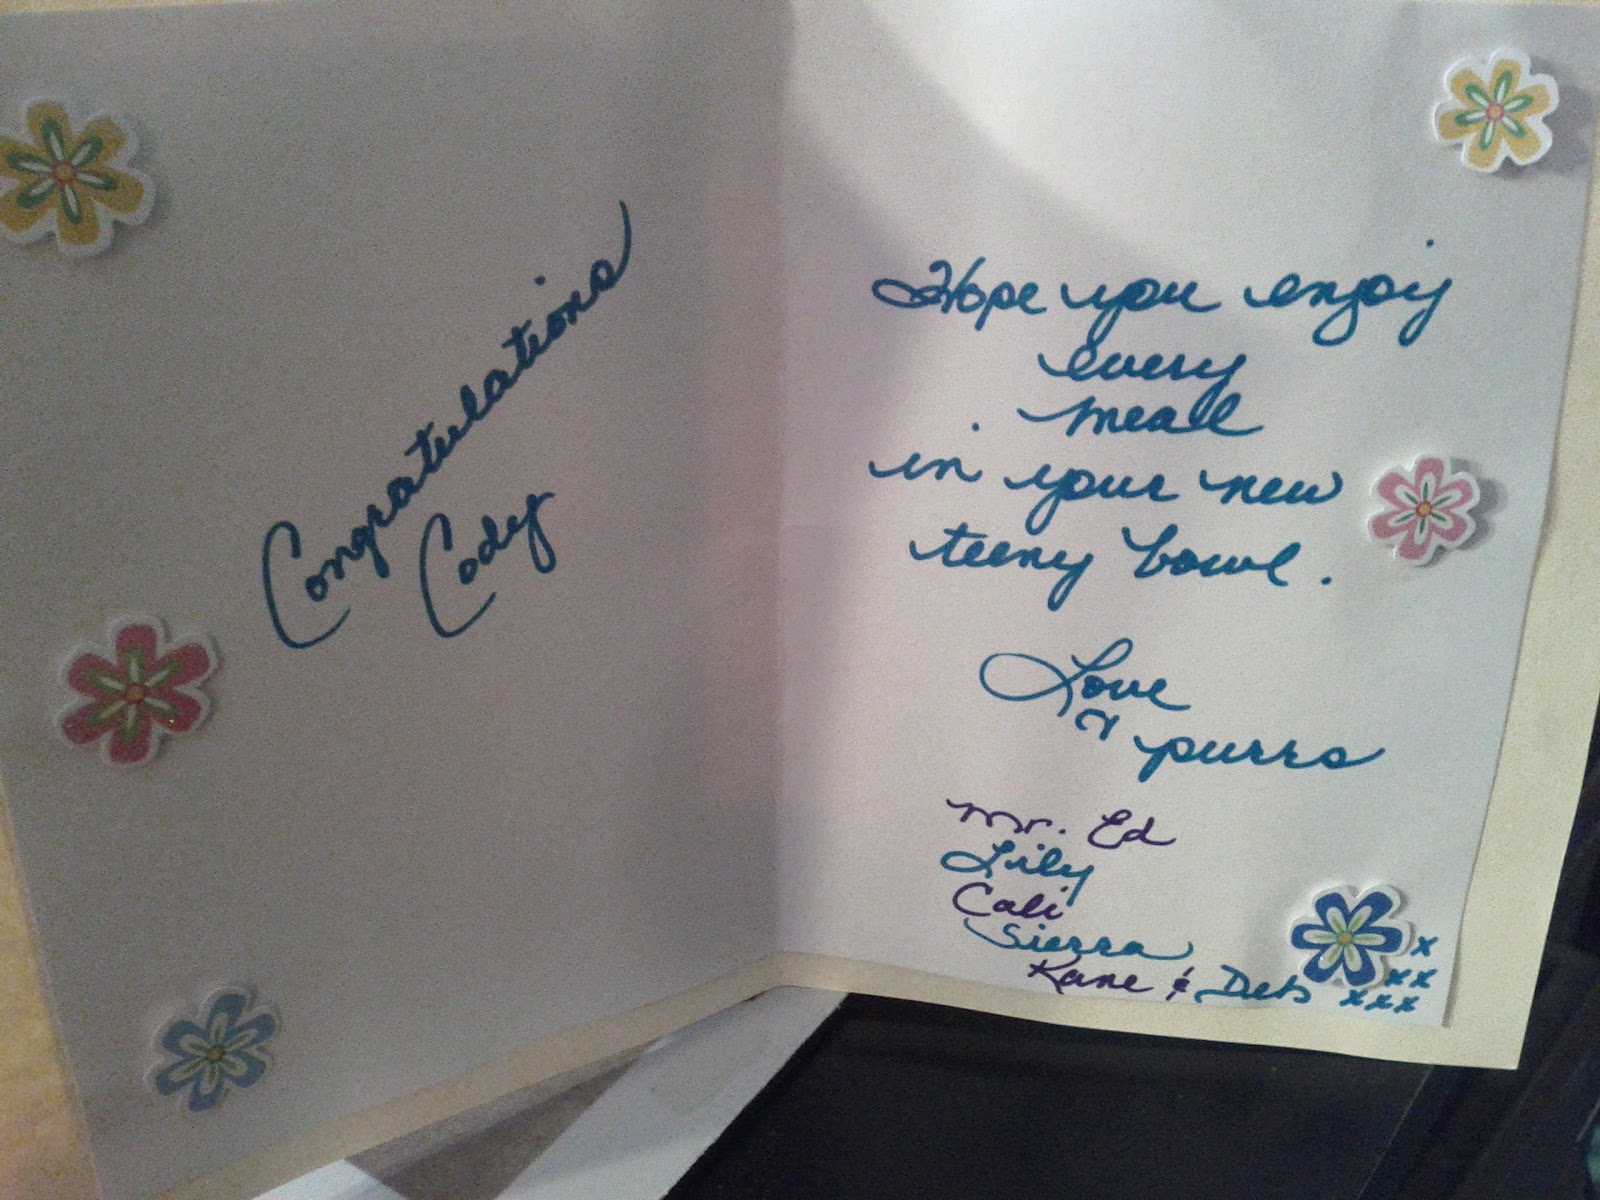 Congratulations
Cody
Hope you enjoy
every
meal
in your new
teeny bowl.
Love
& purrs
Mr. Ed
Lily
Cali
Sierra
Kane & Deb
x
xx
xxx